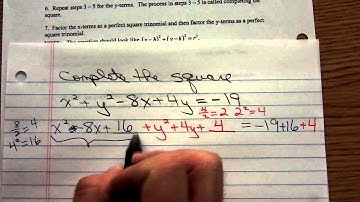 6. Repeat steps 3 – 5 for the y-terms. The process in steps 3 – 5 is called completing the
square.
7. Factor the x-terms as a perfect square trinomial and then factor the y-terms as a perfect
square trinomial.
Complete the square
x² + y² - 8x + 4y = -19
4/2 = 2 2² = 4
8/2 = 4
4² = 16
x² - 8x + 16 + y² + 4y + 4 = -19 + 16 + 4